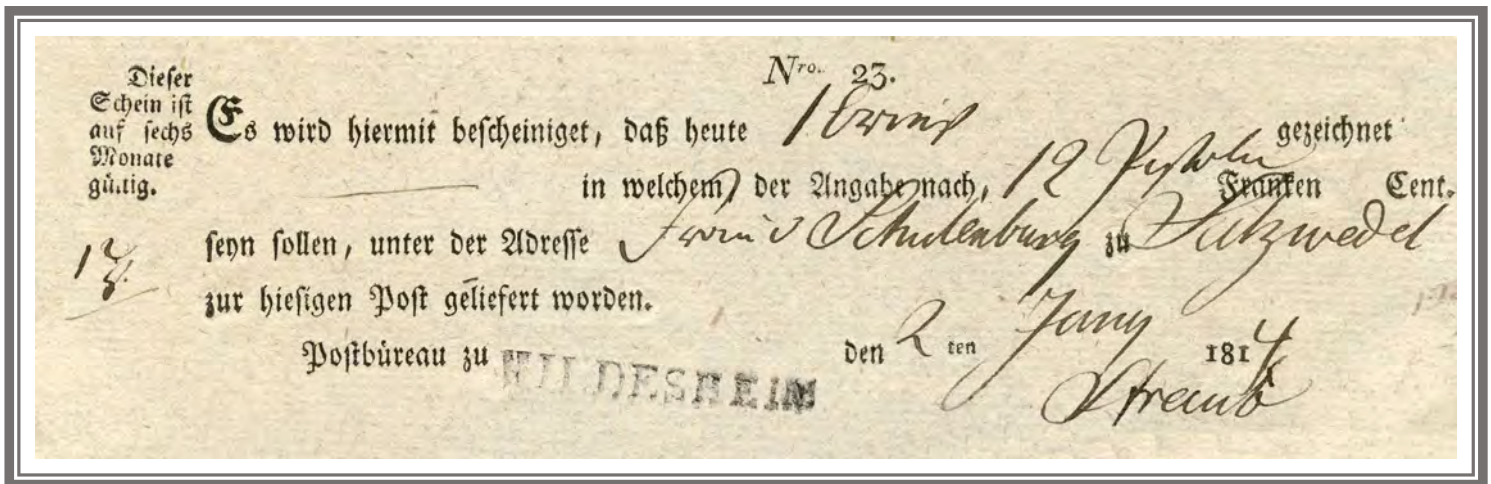 Nro. 23.
Dieser
Schein ist
auf sechs
Monate
gültig.
Es wird hiermit bescheiniget, daß heute 1 gezeichnet
in welchem, der Angabe nach, 12 Pistolen Franken Cent.
seyn sollen, unter der Adresse Schulenburg zu Salzwedel
zur hiesigen Post geliefert worden.
Postbüreau zu HILDESHEIM den 2 ten Jany 1814